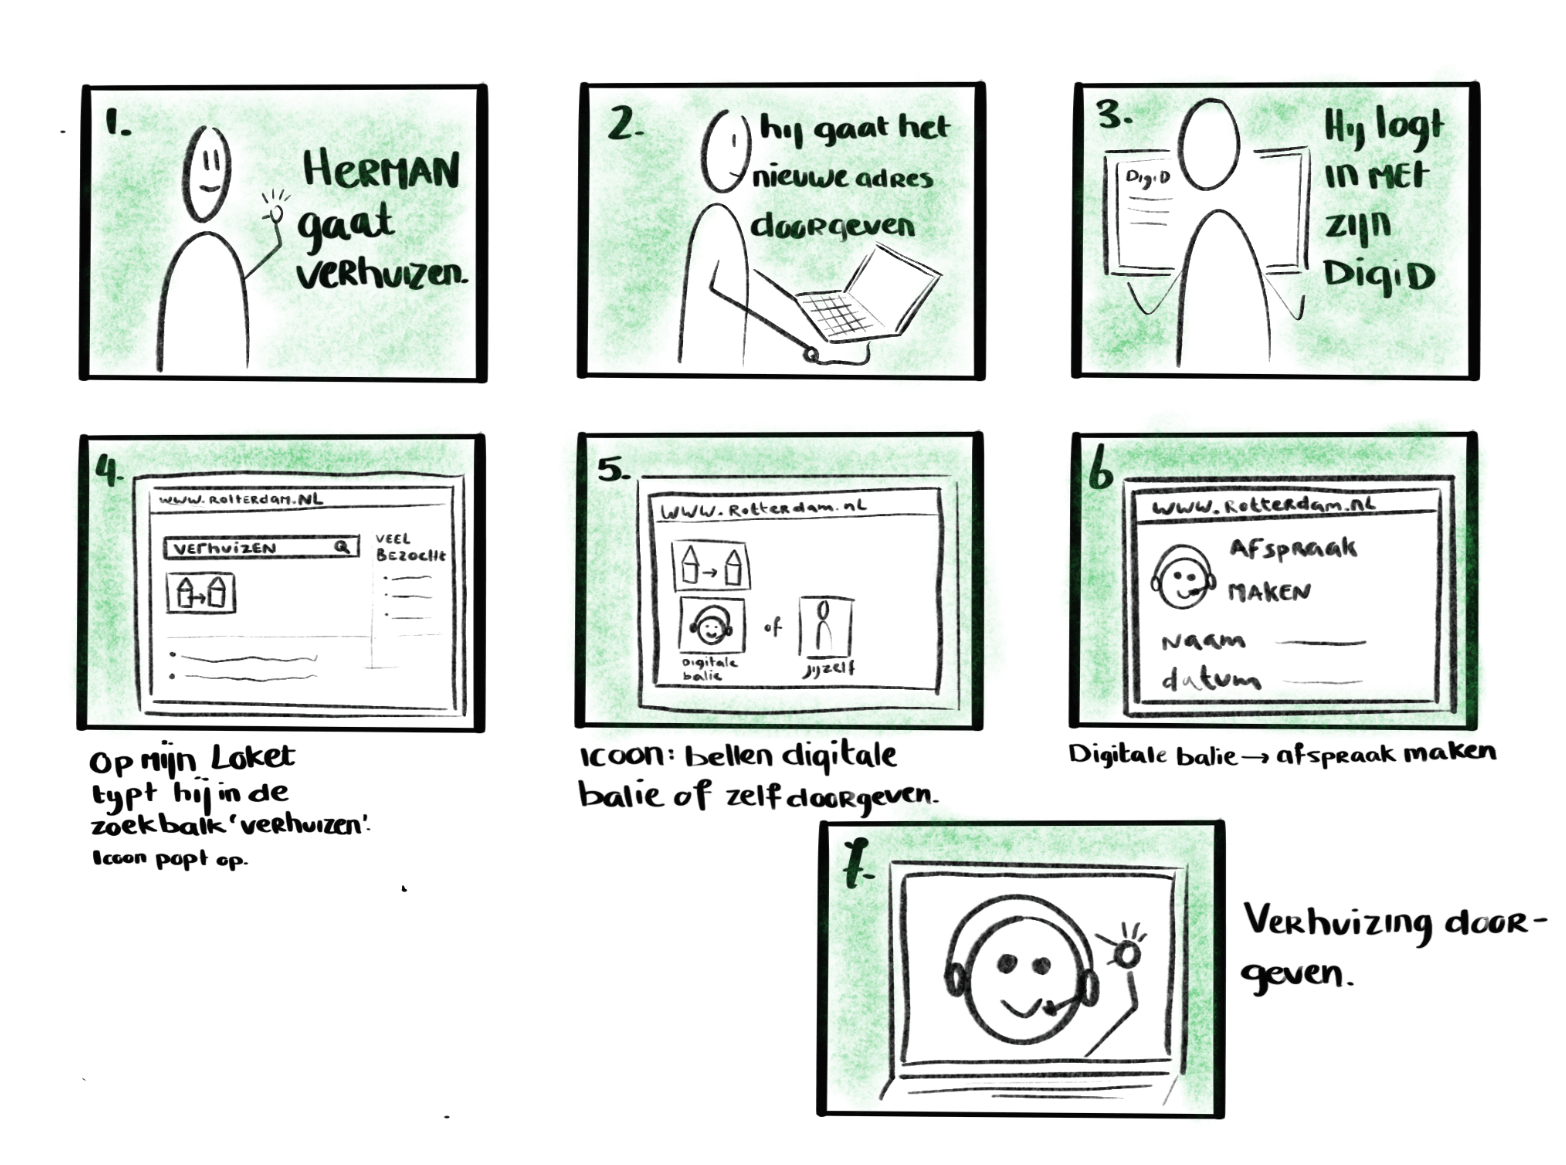 1.
HERMAN
gaat
verhuizen.
2.
hij gaat het
nieuwe adres
doorgeven
3.
Hij logt
in met
zijn
DigiD
DigiD
4.
www.Rotterdam.NL
verhuizen
VEEL
BEZOCHT
Op mijn Loket
typt hij in de
zoekbalk 'verhuizen'.
Icoon popt op.
5.
www.Rotterdam.nl
of
Digitale
balie
jijzelf
Icoon: bellen digitale
balie of zelf doorgeven.
6
www.Rotterdam.nl
Afspraak
maken
Naam
datum
Digitale balie → afspraak maken
7.
Verhuizing door-
geven.